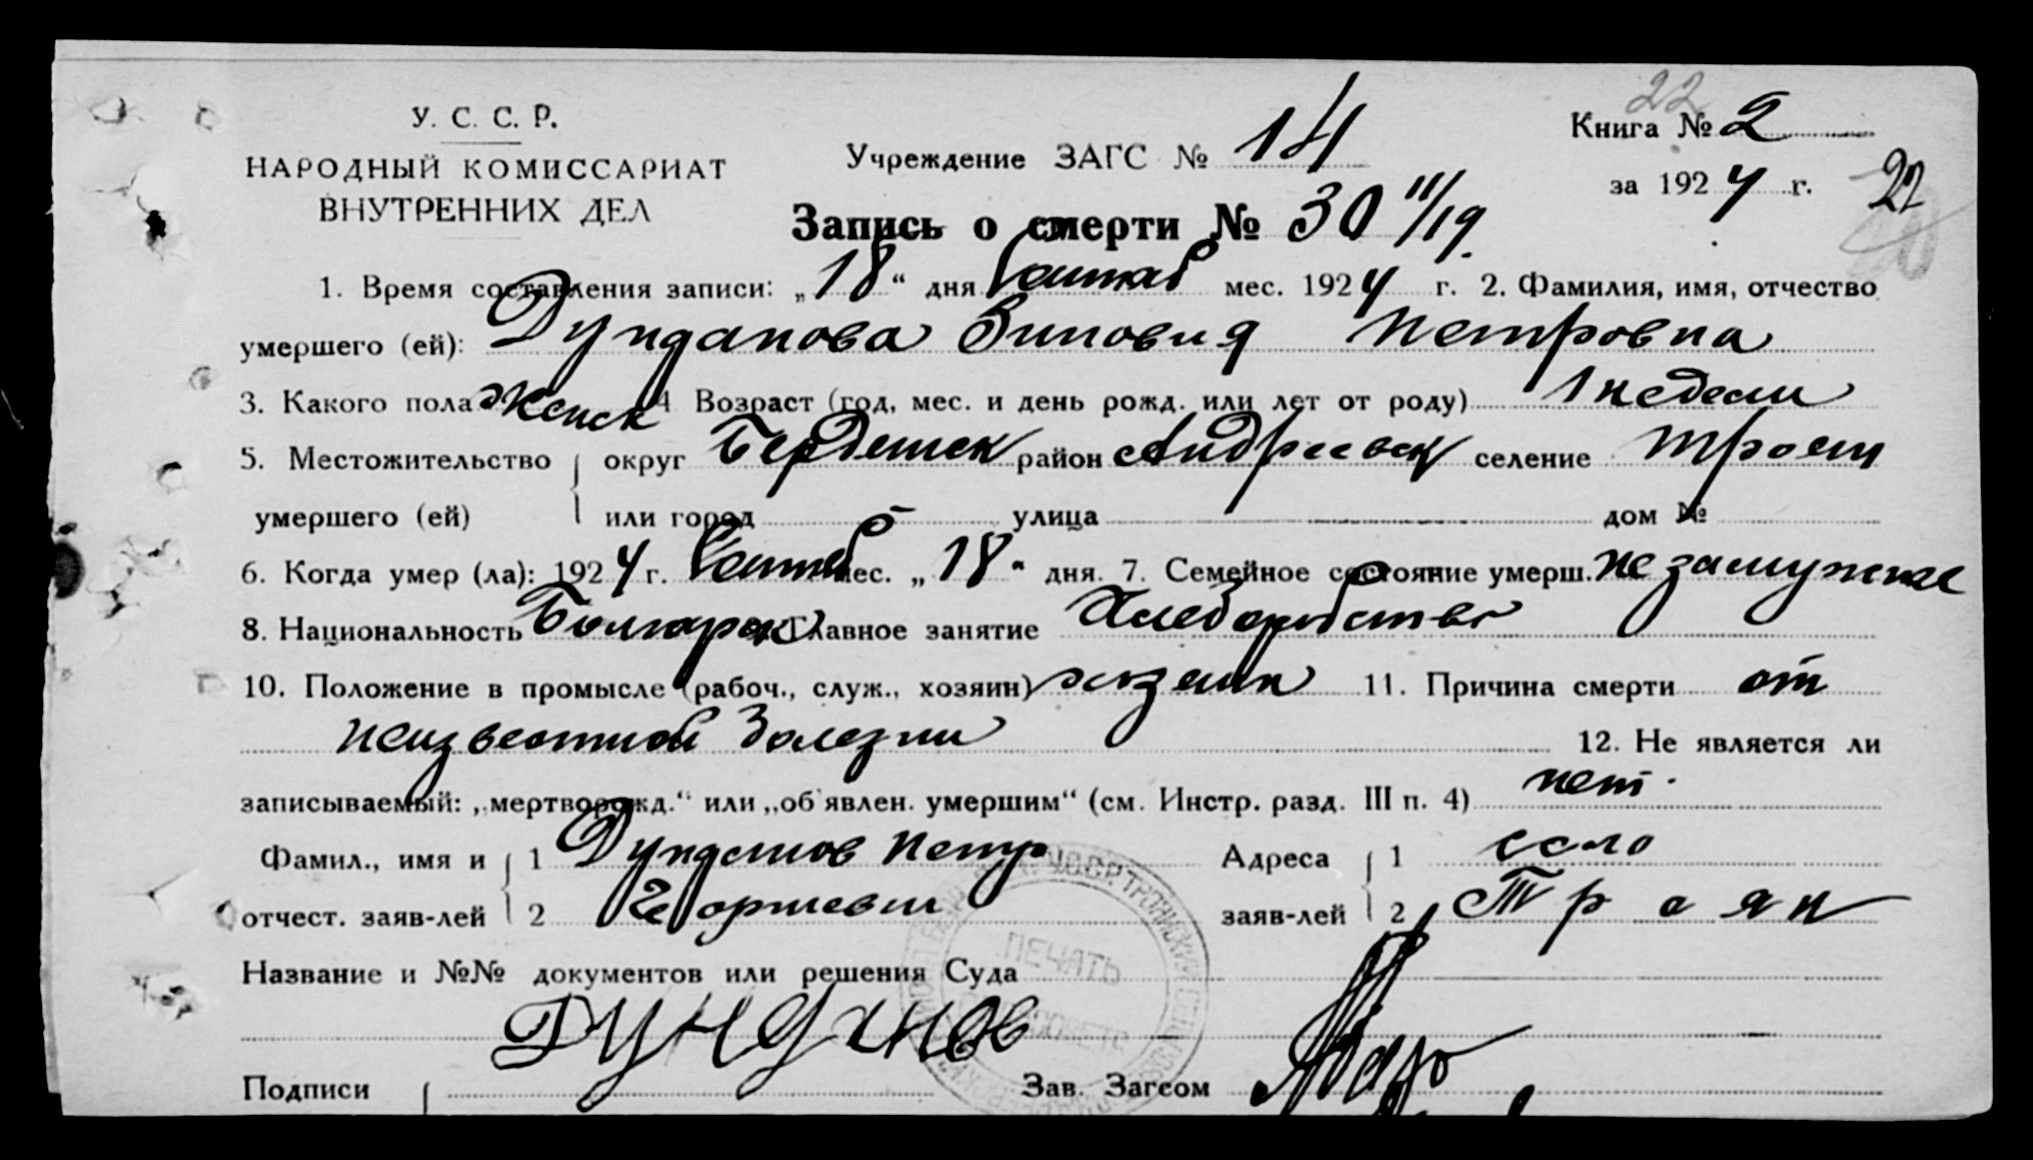 22
У. С. С. Р.
НАРОДНЫЙ КОМИССАРИАТ
ВНУТРЕННИХ ДЕЛ
Учреждение ЗАГС № 14
Книга № 2
за 1924 г. 22
Запись о смерти № 30 11/19.
1. Время составления записи: „18“ дня мес. 1924 г. 2. Фамилия, имя, отчество
умершего (ей): Дунданова Зиновия Петровна
3. Какого пола Женск 4 Возраст (год, мес. и день рожд. или лет от роду) 1 недели
5. Местожительство округ Бердянск район Андреевск селение Троян
умершего (ей) или город – улица дом №
6. Когда умер (ла): 1924 г. мес. „18“ дня. 7. Семейное состояние умерш. не замужнее
8. Национальность Болгарск Главное занятие Хлеборобство
10. Положение в промысле (рабоч., служ., хозяин) хозяин 11. Причина смерти от
неизвестной болезни 12. Не является ли
записываемый: „мертворожд.“ или „об'явлен. умершим“ (см. Инстр. разд. III п. 4) нет.
Фамил., имя и 1 Дунданов Петр Адреса 1 село
отчест. заяв-лей 2 Георгиевич заяв-лей 2 Троян
Название и №№ документов или решения Суда
ПЕЧАТЬ
Дунданов
Подписи Зав. Загсом